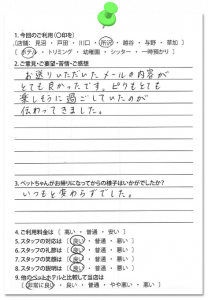 1.今回のご利用(○印を)
[店舗: 見沼 ・ 戸田 ・ 川口 ・ 所沢 ・ 越谷 ・ 与野 ・ 草加 ]
[ホテル ・ トリミング ・ 幼稚園 ・ シッター ・ 一時預かり ]
2.ご意見・ご要望・苦情・ご感想
お送りいただいたメールの内容が
とても良かったです。ピりもとても
楽しそうに過ごしていたのが
伝わってきました。
3.ペットちゃんがお帰りになってからの様子はいかがでしたか?
いつもと変わらずでした。
4.ご利用料金は [ 高い ・ 普通 ・ 安い ]
5.スタッフの対応は [ 良い ・ 普通 ・ 悪い ]
6.スタッフの礼節は [ 良い ・ 普通 ・ 悪い ]
7.スタッフの笑顔は [ 良い ・ 普通 ・ 悪い ]
8.スタッフの説明は [ 良い ・ 普通 ・ 悪い ]
9.他のペットホテルと比較して当店は
[ 非常に良い ・ 良い ・ 普通 ・ やや悪い ・ 悪い ]